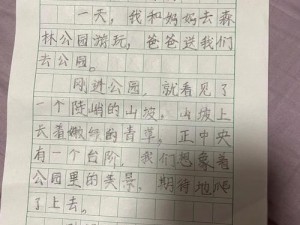 一天，我和妈妈去森
林公园游玩，爸爸送我们
去公园。
刚进公园，就看见了
一个陡峭的山坡。山坡上
长着嫩绿的青草，正中央
有一个台阶，我们想象着
公园里的美景，期待地爬
了上去。